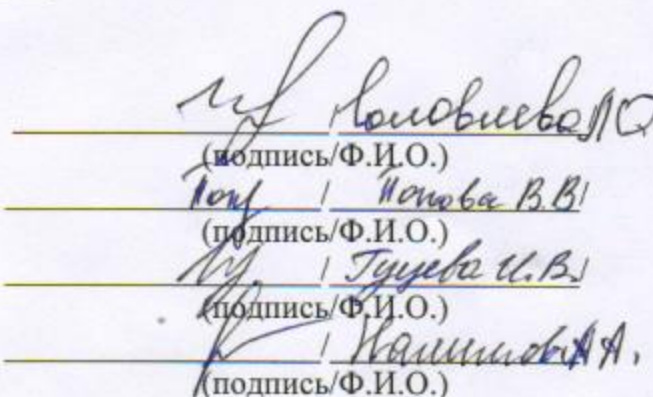 Половлева Л.О.
(подпись/Ф.И.О.)
Поп / Попова В.В.
(подпись/Ф.И.О.)
/ Гуцева И.В.
(подпись/Ф.И.О.)
/ А.А.
(подпись/Ф.И.О.)